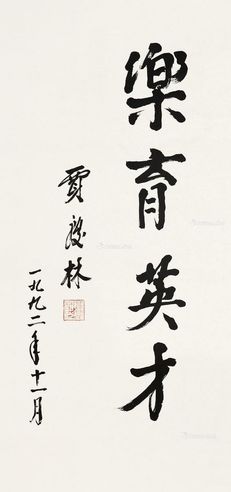 樂育英才
賈慶林
一九九二年十一月